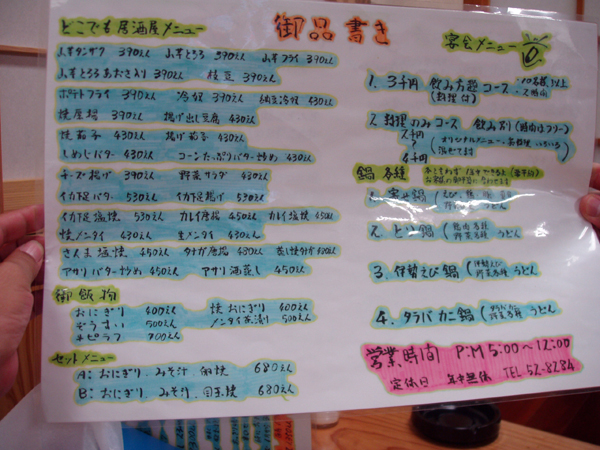 御品書き
どこでも居酒屋メニュー
山芋タンザク 390えん 山芋とろろ 390えん 山芋フライ 390えん
山芋とろろあおさ入り 390えん 枝豆 390えん
ポテトフライ 390えん 冷奴 390えん 納豆冷奴 430えん
焼厚揚 390えん 揚げ出し豆腐 430えん
焼茄子 430えん 揚げ茄子 430えん
しめじバター 430えん コーンたっぷりバター炒め 430えん
チーズ揚げ 390えん 野菜サラダ 430えん
イカ下足バター 530えん イカ下足揚げ 530えん
イカ下足塩焼 530えん カレイ唐揚 450えん カレイ塩焼 450えん
焼メンタイ 430えん 生メンタイ 430えん
さんま塩焼 450えん 唐揚 480えん
アサリバター炒め 450えん アサリ酒蒸し 450えん
御飯物
おにぎり 400えん 焼おにぎり 400えん
ぞうすい 500えん メンタイ茶漬 500えん
ピラフ 700えん
セットメニュー
A:おにぎり、みそ汁 680えん
B:おにぎり、みそ汁、目玉焼 680えん
宴会メニュー
1. 3千円 飲み方題コース ・10名様以上
(料理付) ・2時間
2. 料理のみコース 飲み別(時間はフリー)
2千円
4千円
鍋各種
1.
2. とり鍋 うどん
3. 伊勢えび鍋 うどん
4. タラバカニ鍋 うどん
営業時間 P:M 5:00〜12:00
定休日 年中無休 TEL 52-8284